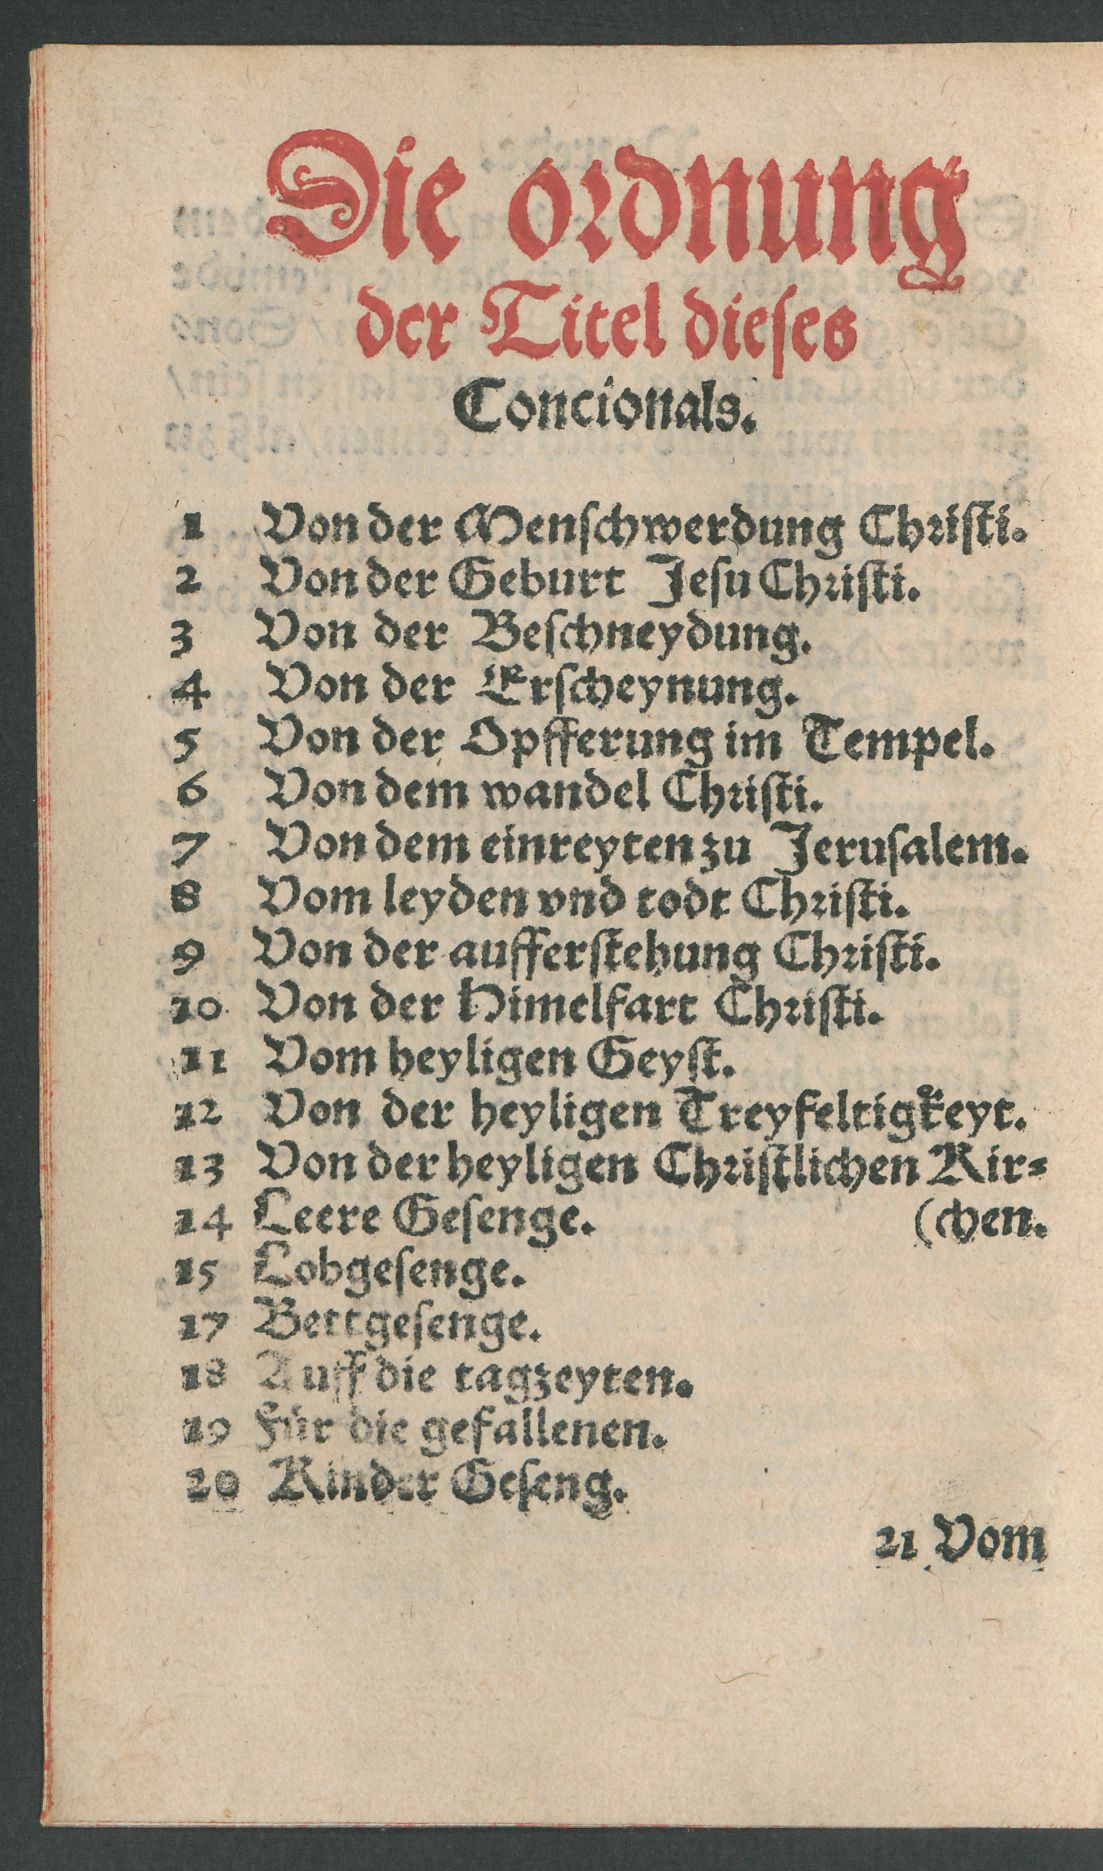 Die ordnung
der Titel dieses
Concionals.
1 Von der Menschwerdung Christi.
2 Von der Geburt Jesu Christi.
3 Von der Beschneydung.
4 Von der Erscheynung.
5 Von der Opfferung im Tempel.
6 Von dem wandel Christi.
7 Von dem einreyten zu Jerusalem.
8 Vom leyden vnd todt Christi.
9 Von der aufferstehung Christi.
10 Von der Himelfart Christi.
11 Vom heyligen Geyst.
12 Von der heyligen Treyfeltigkeyt.
13 Von der heyligen Christlichen Kir-
14 Leere Gesenge. (chen.
15 Lobgesenge.
17 Bettgesenge.
18 Auff die tagzeyten.
19 Für die gefallenen.
20 Kinder Geseng.
21 Vom